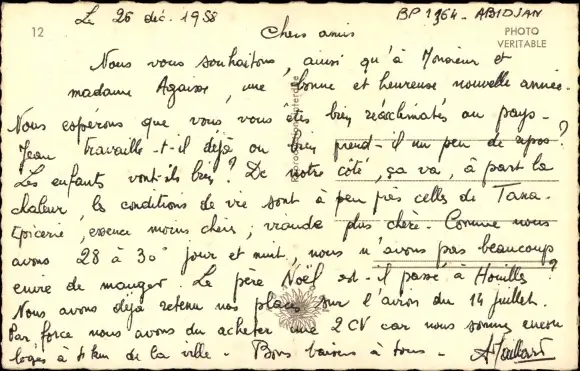 Le 26 déc. 1958
BP 1364 - ABIDJAN
12
PHOTO
VERITABLE
Chers amis
Nous vous souhaitons, ainsi qu'à Monsieur et
madame Agaisse, une bonne et heureuse nouvelle année.
Nous espérons que vous vous êtes bien réacclimatés au pays.
Jean travaille-t-il déjà ou bien prend-il un peu de repos ?
Les enfants vont-ils bien ? De notre côté, ça va, à part la
chaleur, les conditions de vie sont à peu près celles de Tana.
Epicerie, essence moins chère, viande plus chère. Comme nous
avons 28 à 30° jour et nuit, nous n'avons pas beaucoup
envie de manger. Le père Noël est-il passé à Houilles ?
Nous avons déjà retenu nos places sur l'avion du 14 juillet.
Par force nous avons du acheter une 2 CV car nous sommes encore
logés à km de la ville - Bons baisers à tous -
Reproduction interdite